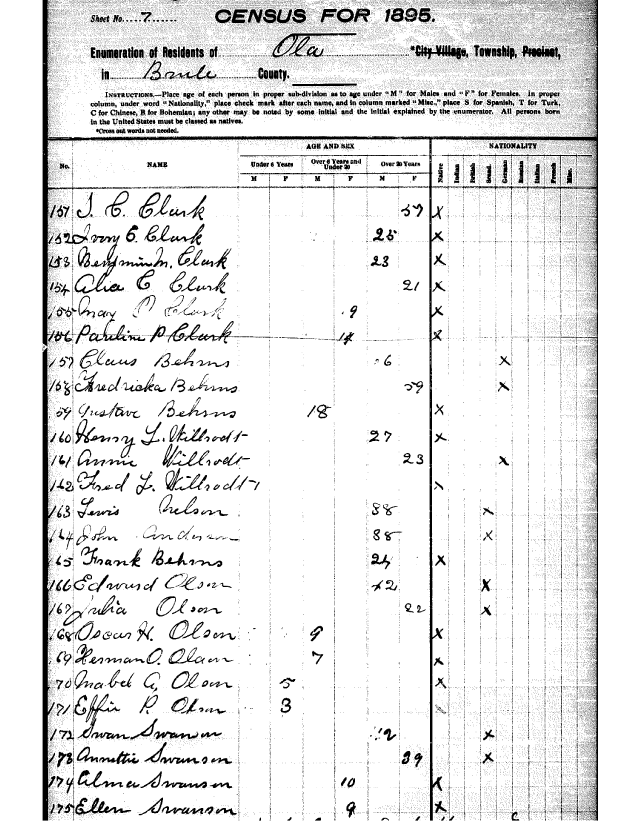 Sheet No. 7
CENSUS FOR 1895.
Enumeration of Residents of Ola *City Village, Township, Precinct,
in Brule County.
INSTRUCTIONS.—Place age of each person in proper sub-division as to age under "M" for Males and "F" for Females. In proper
column, under word "Nationality," place check mark after each name, and in column marked "Misc," place S for Spanish, T for Turk,
C for Chinese, B for Bohemian; any other may be noted by some initial and the initial explained by the enumerator. All persons born
in the United States must be classed as natives.
*Cross out words not needed.
AGE AND SEX NATIONALITY
No. NAME Under 6 Years Over 6 Years and Under 20 Over 20 Years Native Indian British Scand. German Russian Italian French Misc.
M F M F M F
151 J. C. Clark 57 X
152 Ivory E. Clark 25 X
153 Benjmin M. Clark 23 X
154 Alia C Clark 21 X
155 May P Clark 9 X
156 Pauline P Clark 14 X
157 Claus Behrns 6 X
158 Fredricka Behrns 59 X
59 Gustave Behrns 18 X
160 Henry L. Willrodt 27 X
161 Annie Willrodt 23 X
162 Fred L. Willrodt 1 X
163 Lewis Nelson 38 X
164 John Anderson 38 X
165 Frank Behrns 24 X
166 Edward Olson 42 X
167 Julia Olson 22 X
168 Oscar H. Olson 9 X
69 Herman O. Olson 7 X
70 Mabel A, Olson 5 X
171 Effie P. Olson 3 X
172 Swan Swanson 2 X
173 Annettie Swanson 39 X
174 Alma Swanson 10 X
175 Ellen Swanson 9 X